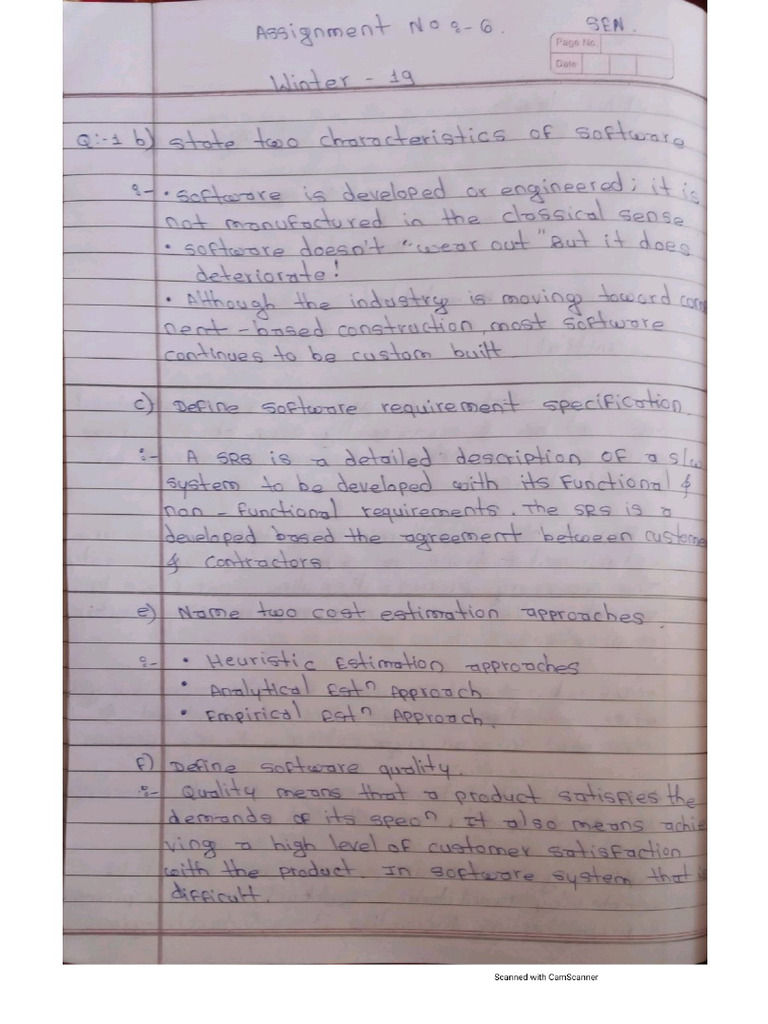 Assignment No :- 6.
SEN.
Page No.
Date
Winter - 19
Q:-1 b) State two characteristics of software
:- • Software is developed or engineered; it is
not manufactured in the classical sense
• software doesn't "wear out" But it does
deteriorate!
• Although the industry is moving toward com
nent-based construction, most software
continues to be custom built
c) Define software requirement specification.
:- A SRS is a detailed description of a s/w
system to be developed with its Functional &
non-functional requirements. The SRS is a
developed based the agreement between custome
& contractors.
e) Name two cost estimation approaches.
:- • Heuristic Estimation approaches
• Analytical Estⁿ Approach
• Empirical Estⁿ Approach.
f) Define software quality.
:- Quality means that a product satisfies the
demands of its specⁿ. It also means achie
ving a high level of customer satisfaction
with the product. In software system that is
difficult.
Scanned with CamScanner